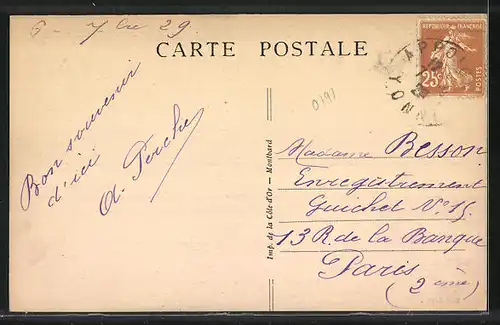 6 - 7bre 29
CARTE POSTALE
REPUBLIQUE FRANÇAISE
25c
POSTES
APPOI
YONN
0791
Bon souvenir
d'ici
A. Perche
Imp. de la Côte-d'Or — Montbard
Madame Besson
Enregistrement
Guichet N° 15
13 R. de la Banque
Paris
(2ème)